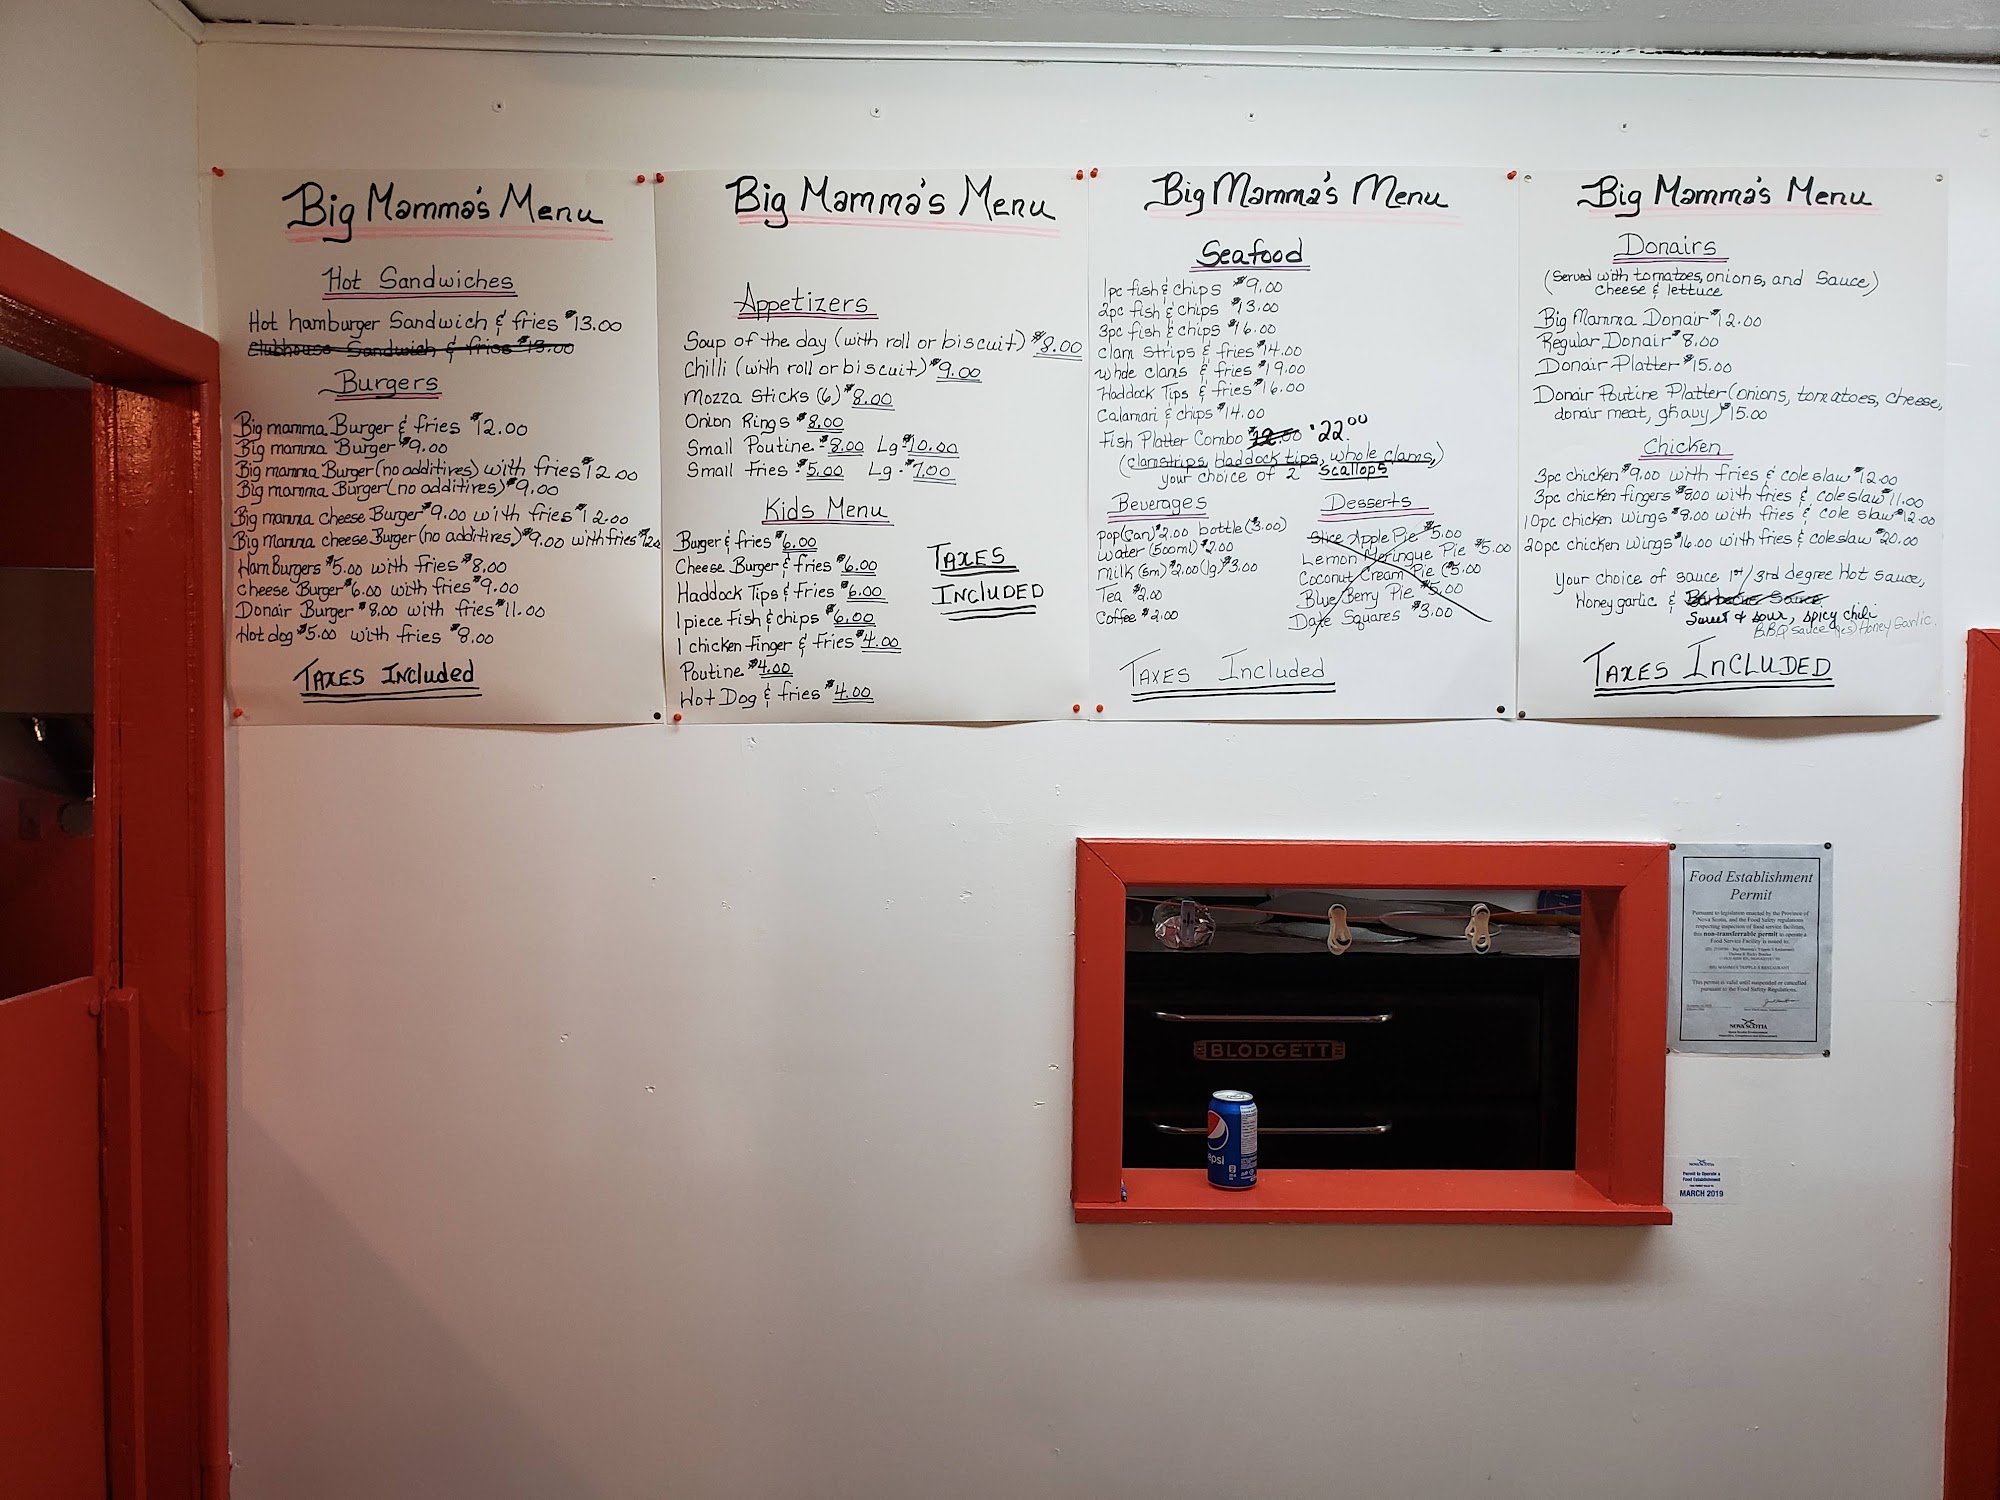 Big Mamma's Menu
Hot Sandwiches
Hot hamburger Sandwich & fries $13.00
Clubhouse Sandwich & fries $13.00
Burgers
Big mamma Burger & fries $12.00
Big mamma Burger $9.00
Big mamma Burger (no additires) with fries $12.00
Big mamma Burger (no additires) $9.00
Big mamma cheese Burger $9.00 with fries $12.00
Big Mamma cheese Burger (no additires) $9.00 with fries $12.00
Ham Burgers $5.00 with fries $8.00
cheese Burger $6.00 with fries $9.00
Donair Burger $8.00 with fries $11.00
Hot dog $5.00 with fries $8.00
TAXES INCluded
Big Mamma's Menu
Appetizers
Soup of the day (with roll or biscuit) $8.00
Chilli (with roll or biscuit) $9.00
Mozza Sticks (6) $8.00
Onion Rings $8.00
Small Poutine - $8.00 Lg - $10.00
Small Fries - $5.00 Lg - $7.00
Kids Menu
Burger & fries $6.00
Cheese Burger & fries $6.00
Haddock Tips & fries $6.00
1 piece Fish & chips $6.00
1 chicken finger & fries $4.00
Poutine $4.00
Hot Dog & fries $4.00
TAXES
INCLUDED
Big Mamma's Menu
Seafood
1pc fish & chips $9.00
2pc fish & chips $13.00
3pc fish & chips $16.00
clam Strips & fries $14.00
whole clams & fries $19.00
Haddock Tips & fries $16.00
Calamari & chips $14.00
Fish Platter Combo $22.00
(clamstrips, Haddock tips, whole clams,)
your choice of 2 scallops
Beverages
pop (can) $2.00 bottle ($3.00)
water (500ml) $2.00
Milk (sm) $2.00 (lg) $3.00
Tea $2.00
Coffee $2.00
Desserts
Slice Apple Pie $5.00
Lemon Meringue Pie $5.00
Coconut Cream Pie $5.00
Blue Berry Pie $5.00
Date Squares $3.00
TAXES Included
Big Mamma's Menu
Donairs
(Served with tomatoes, onions, and Sauce)
cheese & lettuce
Big Mamma Donair $12.00
Regular Donair $8.00
Donair Platter $15.00
Donair Poutine Platter (onions, tomatoes, cheese,
donair meat, gravy) $15.00
Chicken
3pc chicken $9.00 with fries & cole slaw $12.00
3pc chicken fingers $8.00 with fries & coleslaw $11.00
10pc chicken wings $8.00 with fries & cole slaw $12.00
20pc chicken wings $16.00 with fries & coleslaw $20.00
Your choice of sauce 1st/3rd degree Hot sauce,
Honey garlic & Barbecue Sauce,
Sweet & sour, spicy chili
BBQ sauce (yes) Honey Garlic.
TAXES INCLUDED
Food Establishment
Permit
Pursuant to legislation enacted by the Province of
Nova Scotia, and the Food Safety regulations
respecting inspection of food service facilities,
this non-transferrable permit to operate a
Food Service Facility is issued to:
BIG MAMMA'S TRIPPLE S RESTAURANT
This permit is valid until suspended or cancelled
pursuant to the Food Safety Regulations.
NOVA SCOTIA
BLODGETT
epsi
NOVA SCOTIA
Permit to Operate a
Food Establishment
MARCH 2019